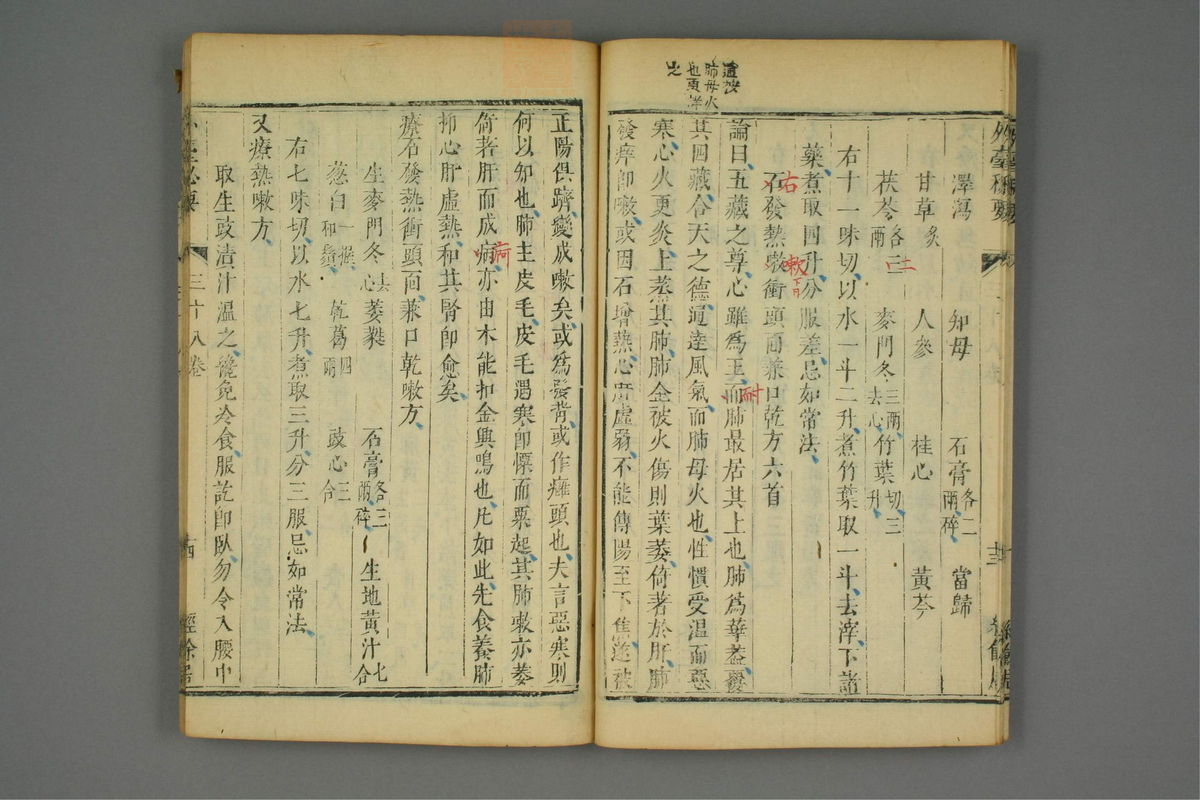 道按
肺母火
也更詳
之
外臺秘要
澤瀉 知母 石膏各二兩碎 當歸
甘草炙 人參 桂心 黃芩
茯苓各三兩 麥門冬三兩去心 竹葉切三升
右十一味切以水一斗二升煮竹葉取一斗去滓下諸
藥煮取四升分服差忌如常法
石發熱嗽衝頭面兼口乾方六首
右
嗽
耐
論曰五藏之尊心雖為王而肺最居其上也肺為華蓋覆
其四藏合天之德通達風氣而肺母火也性慣受温而惡
寒心火更炎上蒸其肺肺金被火傷則葉萎倚著於肝肺
發痒即嗽或因石增熱心肺虛弱不能傳陽至下焦遂被
正陽俱躋變成嗽矣或為發背或作癰頭也夫言惡寒則
何以知也肺主皮毛皮毛遇寒即慄而粟起其肺嗽亦萎
倚著肝而成病亦由木能扣金興鳴也凡如此先食養肺
抑心肝虛熱和其腎即愈矣
療石發熱衝頭面兼口乾嗽方
生麥門冬去心 萎蕤 石膏各三兩碎 生地黃汁七合
葱白一握和鬚 乾葛四兩 豉心三合
右七味切以水七升煮取三升分三服忌如常法
又療熱嗽方
取生豉漬汁温之 免冷食服訖即臥勿令入腰中
三十八卷 十四 經餘居